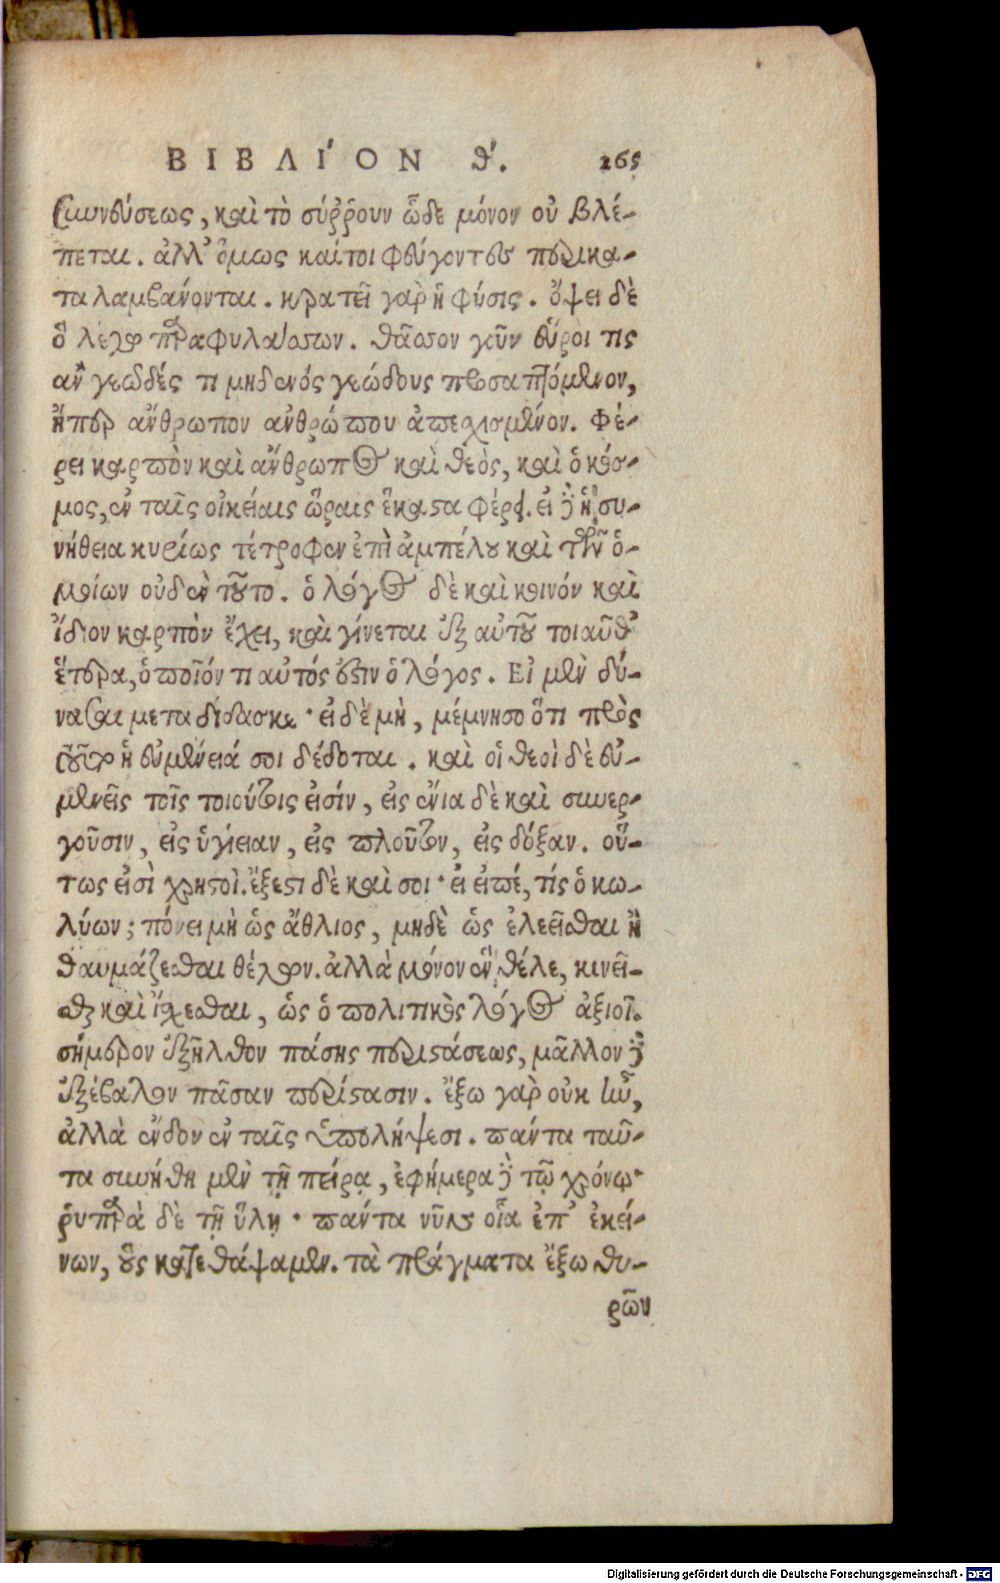 ΒΙΒΛΙʼΟΝ θʹ. 265
συννεύσεως, καὶ τὸ σύῤῥουν ὧδε μόνον οὐ βλέ-
πεται. ἀλλ' ὅμως καίτοι φεύγοντες περικα-
ταλαμβάνονται. κρατεῖ γὰρ ἡ φύσις. ὄψει δὲ
ὃ λέγω παραφυλάσσων. θᾶσσον γοῦν εὕροι τις
ἂν γεῶδές τι μηδενός γεώδους προσαπτόμενον,
ἤπερ ἄνθρωπον ἀνθρώπου ἀπεχισμένον. Φέ-
ρει καρπὸν καὶ ἄνθρωπος καὶ θεὸς, καὶ ὁ κόσ-
μος, ἐν ταῖς οἰκείαις ὥραις ἕκαστα φέρει. εἰ δὲ ἡ συ-
νήθεια κυρίως τέτροφεν ἐπὶ ἀμπέλου καὶ τῶν ὁ-
μοίων οὐδὲν τοῦτο. ὁ λόγος δὲ καὶ κοινόν καὶ
ἴδιον καρπὸν ἔχει, καὶ γίνεται ἐξ αὐτοῦ τοιαῦθ'
ἕτερα, ὁποῖόν τι αὐτός ἐστιν ὁ λόγος. Εἰ μὲν δύ-
νασαι μεταδίδασκε· εἰ δὲ μὴ, μέμνησο ὅτι πρὸς
τοῦτο ἡ εὐμένειά σοι δέδοται. καὶ οἱ θεοὶ δὲ εὐ-
μενεῖς τοῖς τοιούτοις εἰσίν, εἰς ἔνια δὲ καὶ συνερ-
γοῦσιν, εἰς ὑγίειαν, εἰς πλοῦτον, εἰς δόξαν. οὕ-
τως εἰσὶ χρηστοὶ. ἔξεστι δὲ καὶ σοι· ἢ εἰπέ, τίς ὁ κω-
λύων; πόνει μὴ ὡς ἄθλιος, μηδὲ ὡς ἐλεεῖσθαι ἢ
θαυμάζεσθαι θέλων. ἀλλὰ μόνον ἓν θέλε, κινεῖ-
σθαι καὶ ἴσχεσθαι, ὡς ὁ πολιτικὸς λόγος ἀξιοῖ.
σήμερον ἐξῆλθον πάσης περιστάσεως, μᾶλλον δὲ
ἐξέβαλον πᾶσαν περίστασιν. ἔξω γὰρ οὐκ ἦν,
ἀλλὰ ἔνδον ἐν ταῖς ὑπολήψεσι. πάντα ταῦ-
τα συνήθη μὲν τῇ πείρᾳ, ἐφήμερα δὲ τῷ χρόνῳ·
ῥυπαρὰ δὲ τῇ ὕλῃ· πάντα νῦν οἷα ἐπ' ἐκεί-
νων, οὓς κατεθάψαμεν. τὰ πράγματα ἔξω θυ-
ρῶν
Digitalisierung gefördert durch die Deutsche Forschungsgemeinschaft - DFG